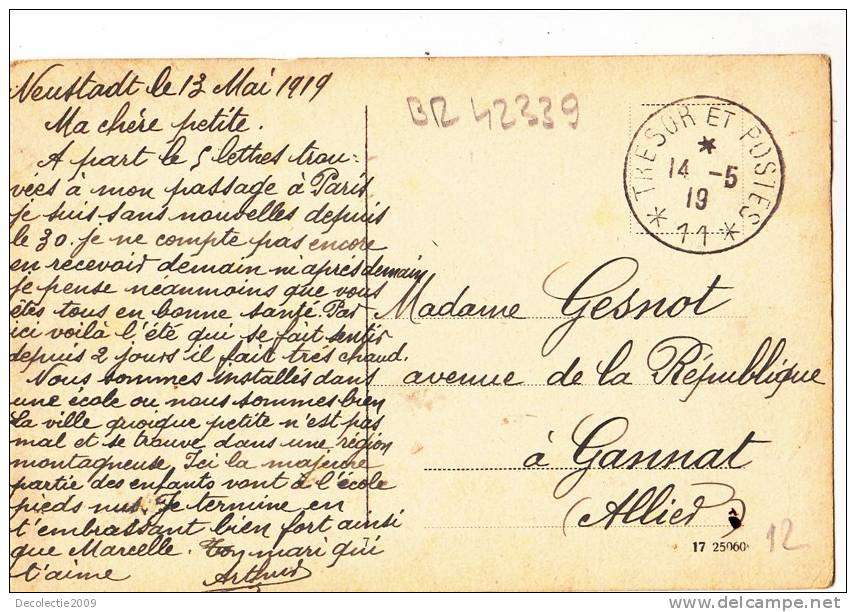 Neustadt le 13 Mai 1919
Ma chère petite.
A part le 5 lettres trou-
vées à mon passage à Paris
je suis sans nouvelles depuis
le 30. je ne compte pas encore
en recevoir demain ni après demain
je pense neanmoins que vous
êtes tous en bonne santé. Par
ici voilà l'été qui se fait sentir
depuis 2 jours il fait très chaud.
Nous sommes installés dans
une école ou nous sommes bien
La ville quoique petite n'est pas
mal et se trouve dans une région
montagneuse. Ici la majeure
partie des enfants vont à l'école
pieds nus. Je termine en
t'embrassant bien fort ainsi
que Marcelle. Ton mari qui
t'aime Arthur
BR 42339
TRESOR ET POSTES
14 -5
19
* 11 *
Madame Gesnot
avenue de la République
à Gannat
(Allier)
17 25060
12
Decolectie2009
delcampe.net